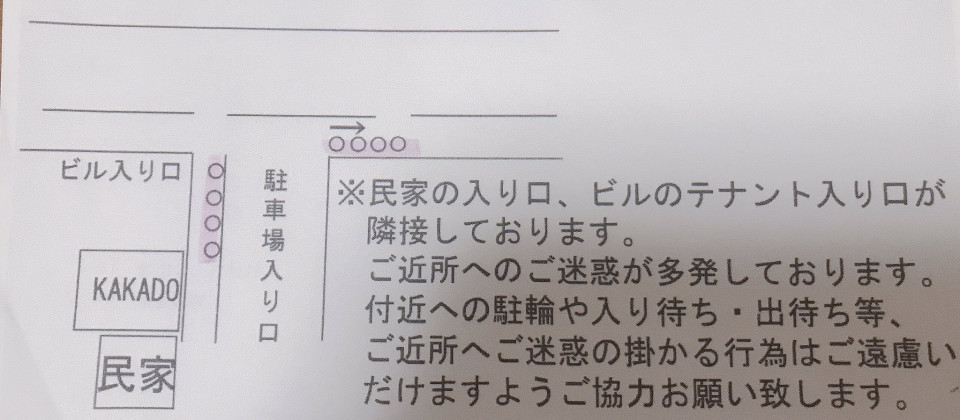 ビル入り口
駐車場入り口
KAKADO
民家
※民家の入り口、ビルのテナント入り口が
隣接しております。
ご近所へのご迷惑が多発しております。
付近への駐輪や入り待ち・出待ち等、
ご近所へご迷惑の掛かる行為はご遠慮い
だけますようご協力お願い致します。